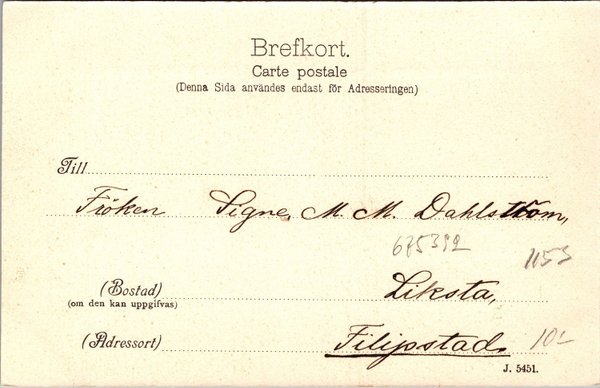 Brefkort.
Carte postale
(Denna Sida användes endast för Adresseringen)
Till
Fröken Signe, M. M. Dahlström,
675392
1153
(Bostad) Liksta,
(om den kan uppgifvas)
(Adressort) Filipstad. 10-
J. 5451.